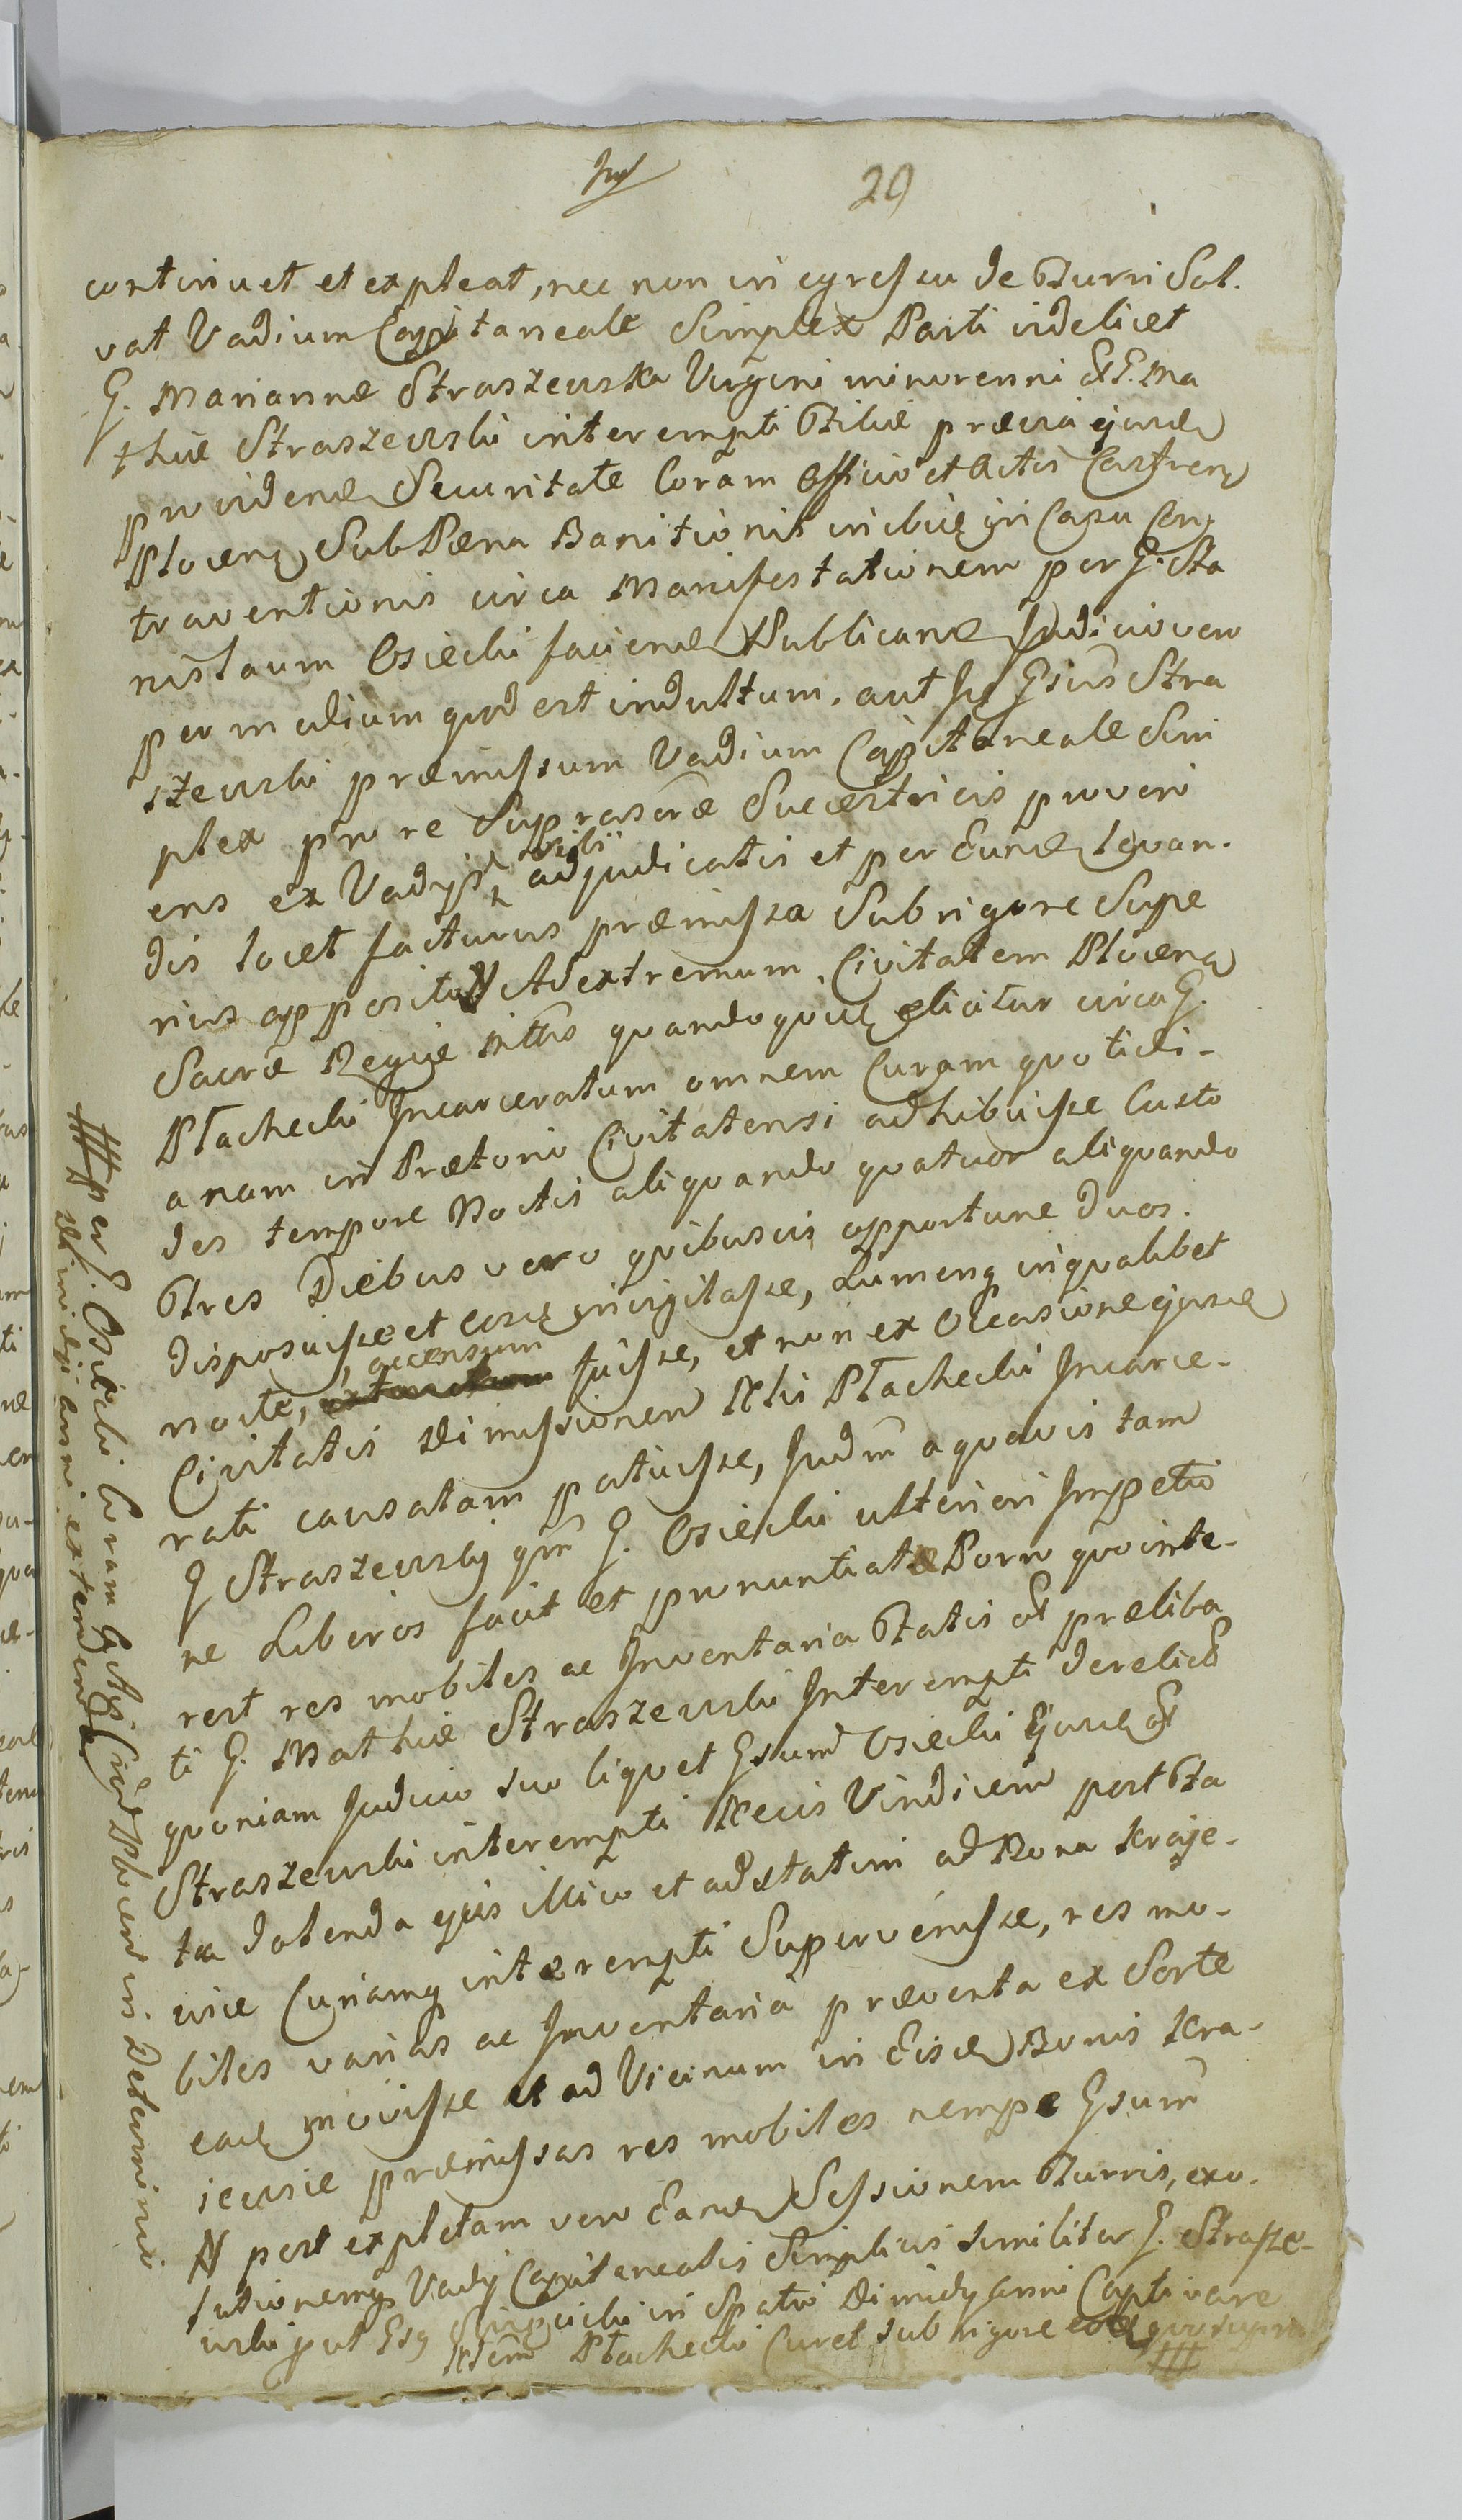 29
continuet et expleat, nec non in egressu de Turri Sol-
vat Vadium Capitaneale Simplex Parti videlicet
G. Mariannæ Straszewska Virgini minorenni G. Ma
thiæ Straszewski interempti Filiæ prævia ejusd
providend Securitate Coram Officio et Actis Castren
Plocen Sub Pæna Banitionis in casu Con
traventionis circa Manifestationem per G. Sta
nisłaum Osiecki faciend Publicand Judicio vero
per medium quod est indultum. aut Gsus Stra
szewski præmissum Vadium Capitaneale Sim
plex pro re Suprascræ Sucestricis proveni
ens ex Vadijs sibi adjudicatis et per Eund levan-
dis locet facturus præmissa Sub rigore Supe
rius apposito N Ad extremum Civitatem Plocen
Sacræ Regiæ Mttis quandoquid elicitur circa G.
Płachecki Incarceratum omnem Curam quotidi-
anam in Prætorio Civitatensi adhibuisse Custo
des tempore Noctis aliquando quatuor aliquando
Tres Diebus vero quibusvis opportune Duos.
disposuisse et invigilasse, Lumenq in qualibet
nocte, accensum fuisse, et non ex Occasione ejusd
Civitatis Dimissionem Nlis Płachecki Incarce-
rati causatam patuisse, Judm a quovis tam
G Straszewski qm G. Osiecki ulteriori Impetio
ne Liberos facit et pronuntiat Porro quo inte-
rest res mobiles ac Inventaria Fatis præliba
ti G. Mathiæ Straszewski Interempti derelict
quoniam Judicio suo liquet Gsum Osiecki Ejusd
Straszewski interempti Necis Vindicem post Fa
ta dolenda ejus illico et adstatim ad Bona Kraje-
wice Curiamq interempti Supervenisse, res mo-
biles varias ac Inventaria præventa ex Sorte
ead movisse et ad Vicinum in Eisd Bonis Kra-
jewice præmissas res mobiles nempe Gsum
N post expletam vero Eand Sessionem Turris, exo-
lutionemq Vadij Capitanealis Simplicis similiter G. Strasze-
wski in Spatio Dimidij Anni Captivare
Płachecki Curet sub rigore quo supra
per G. Osiecki Coram Plocen in Determino
Dimidij anni extendend